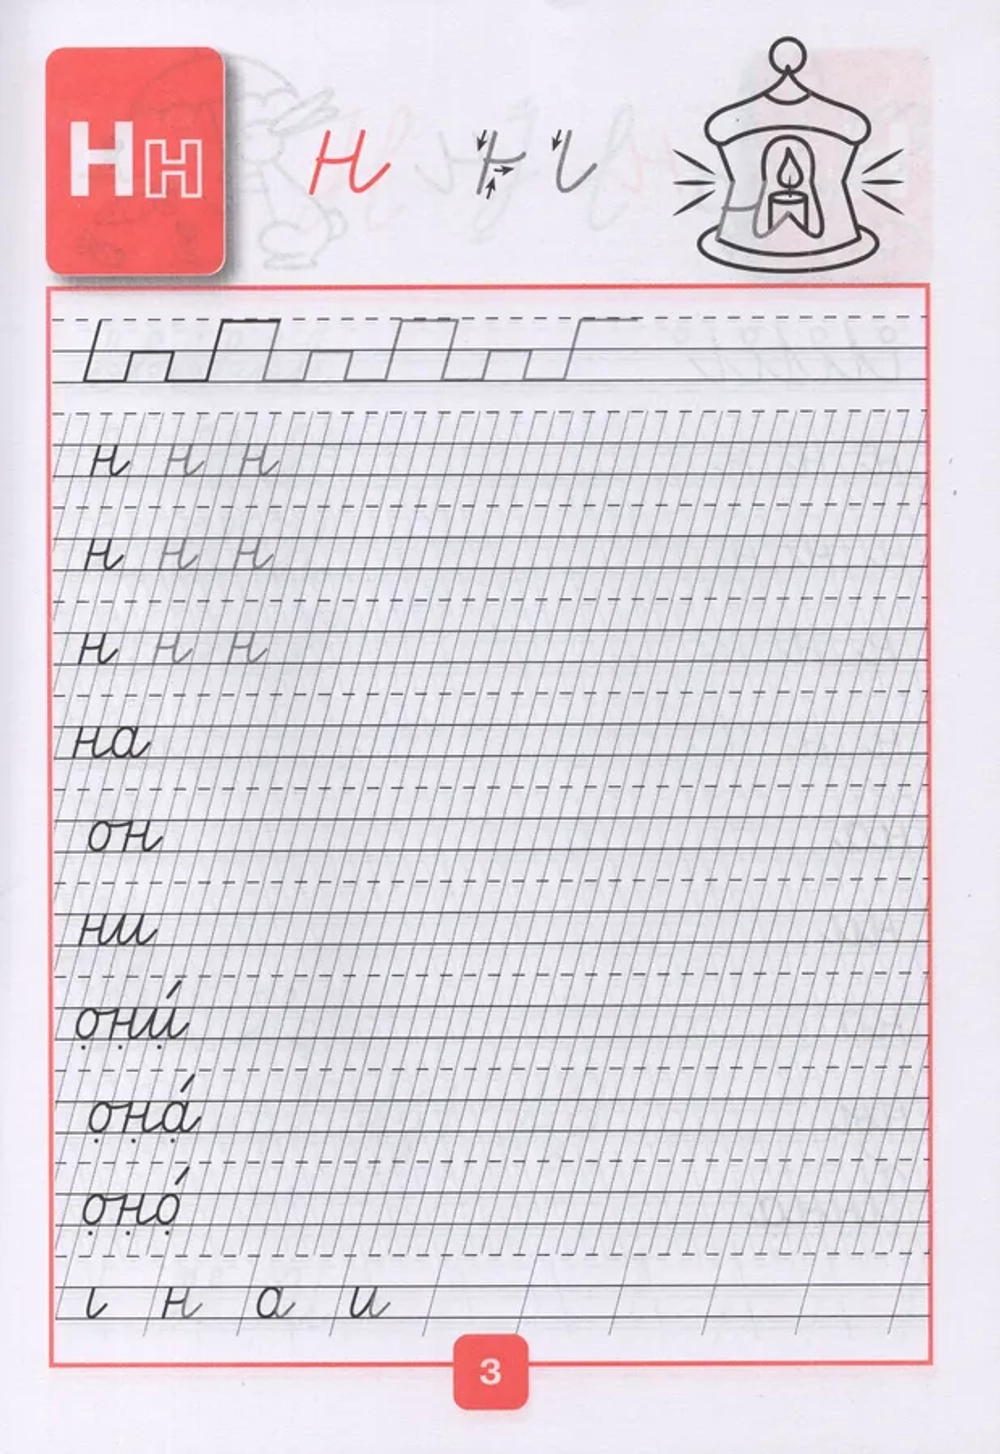 Н н
н
н н н
н н н
н н н
на
он
ни
они́
она́
оно́
н а и
3